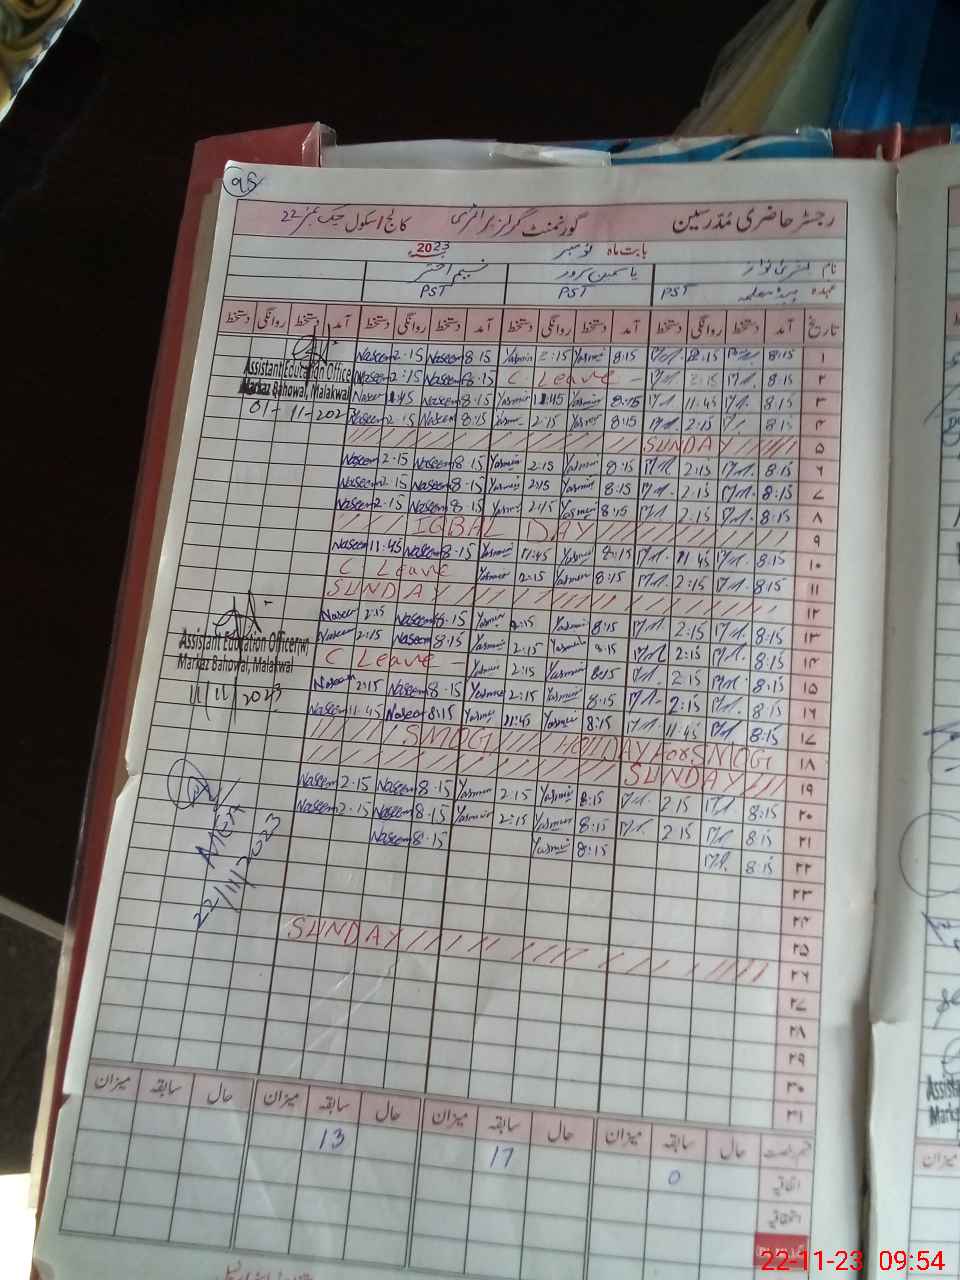 95
رجسٹر حاضری مدرسین گورنمنٹ گرلز پرائمری سکول چک نمبر 22
بابت ماہ نومبر 2023
نام یاسمین سرور نسیم اختر
عہدہ PST PST PST
تاریخ آمد دستخط روانگی دستخط آمد دستخط روانگی دستخط آمد دستخط روانگی دستخط آمد دستخط روانگی دستخط
۱ 8:15 2:15 8:15 Yasmin 2:15 Yasmin 8:15 Naseem 2:15 Naseem
۲ 8:15 2:15 C Leave 8:15 Naseem 2:15 Naseem
۳ 8:15 11:45 8:15 Yasmin 11:45 Yasmin 8:15 Naseem 11:45 Naseem
۴ 8:15 2:15 8:15 Yasmin 2:15 Yasmin 8:15 Naseem 2:15 Naseem
۵ SUNDAY
۶ 8:15 2:15 8:15 Yasmin 2:15 Yasmin 8:15 Naseem 2:15 Naseem
۷ 8:15 2:15 8:15 Yasmin 2:15 Yasmin 8:15 Naseem 2:15 Naseem
۸ 8:15 2:15 8:15 Yasmin 2:15 Yasmin 8:15 Naseem 2:15 Naseem
۹ IQBAL DAY
۱۰ 8:15 11:45 8:15 Yasmin 11:45 Yasmin 8:15 Naseem 11:45 Naseem
۱۱ 8:15 2:15 8:15 Yasmin 2:15 Yasmin C Leave
۱۲ SUNDAY
۱۳ 8:15 2:15 8:15 Yasmin 2:15 Yasmin 8:15 Naseem 2:15 Naseem
۱۴ 8:15 2:15 8:15 Yasmin 2:15 Yasmin 8:15 Naseem 2:15 Naseem
۱۵ 8:15 2:15 8:15 Yasmin 2:15 Yasmin C Leave
۱۶ 8:15 2:15 8:15 Yasmin 2:15 Yasmin 8:15 Naseem 2:15 Naseem
۱۷ 8:15 11:45 8:15 Yasmin 11:45 Yasmin 8:15 Naseem 11:45 Naseem
۱۸ SMOG HOLIDAY For SMOG
۱۹ SUNDAY
۲۰ 8:15 2:15 8:15 Yasmin 2:15 Yasmin 8:15 Naseem 2:15 Naseem
۲۱ 8:15 2:15 8:15 Yasmin 2:15 Yasmin 8:15 Naseem 2:15 Naseem
۲۲ 8:15 8:15 Yasmin 8:15 Naseem
۲۳
۲۴
۲۵
۲۶ SUNDAY
۲۷
۲۸
۲۹
۳۰
۳۱
Assistant Education Office
Markaz Bahowal, Malakwal
01-11-202
Assistant Education Officer
Markaz Bahowal, Malakwal
11/11/2023
AMEA
22/11/2023
حال سابقہ میزان حال سابقہ میزان حال سابقہ میزان حال سابقہ میزان
اتفاقیہ 0 17 13
Assista
Mark
میزان
22-11-23 09:54